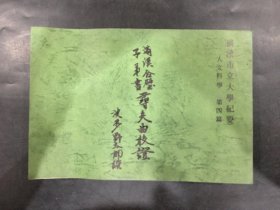 橫濱市立大學紀要
人文科學 第四篇
滿漢合璧
子弟書
尋夫曲校證
波多野太郎撰